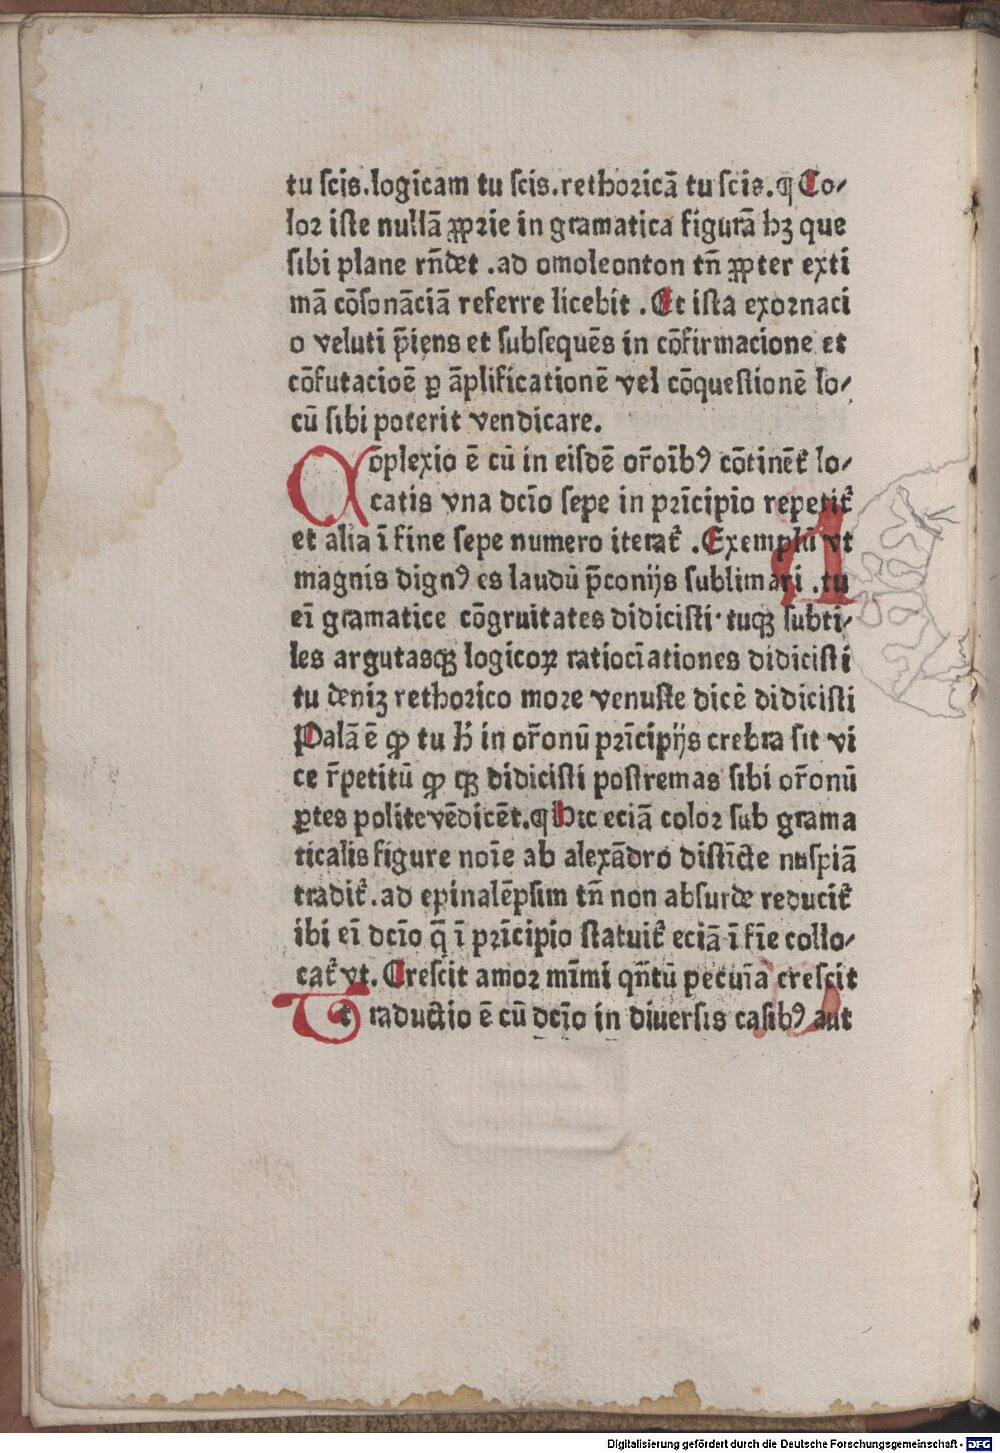 tu scis.logicam tu scis.rethoricā tu scis.¶ Co⸗
lor iste nullā ꝓprie in gramatica figurā hꝫ que
sibi plane rñdet .ad omoleonton tñ ꝓpter exti
mā cōsonāciā referre licebit . Et ista exornaci
o veluti p̄iens et subsequēs in cōfirmacione et
cōfutacioē ꝑ āplificationē vel cōquestionē lo⸗
cū sibi poterit vendicare.
Cōplexio ē cū in eisdē or̄oībꝰ cōtinēt᷑ lo⸗
catis vna dcīo sepe in prīcipio repetit᷑
et alia ī fine sepe numero iterat᷑ . Exemplū vt
magnis dignꝰ es laudū p̄conijs sublimari .tu
eī gramatice cōgruitates didicisti· tuqꝫ subti⸗
les argutasqꝫ logicoꝝ ratiocīationes didicisti
tu deniꝫ rethorico more venuste dicē didicisti
Palā ē ꝙ tu h̄ in or̄onū prīcipijs crebra sit vi
ce r̄petitū ꝙ qꝫ didicisti postremas sibi or̄onū
ꝑtes polite vēdicēt.¶ Hic eciā color sub grama
ticalis figure noīe ab alexādro distīcte nuspiā
tradit᷑ .ad epinalēpsim tñ non absurde reducit᷑
ibi eī dcīo q̄ ī prīcipio statuit᷑ eciā ī fīe collo⸗
cat᷑ vt. Crescit amor mīmi qñtū pecuīa crescit
Traductio ē cū dcīo in diuersis casibꝰ aut
Digitalisierung gefördert durch die Deutsche Forschungsgemeinschaft - DFG